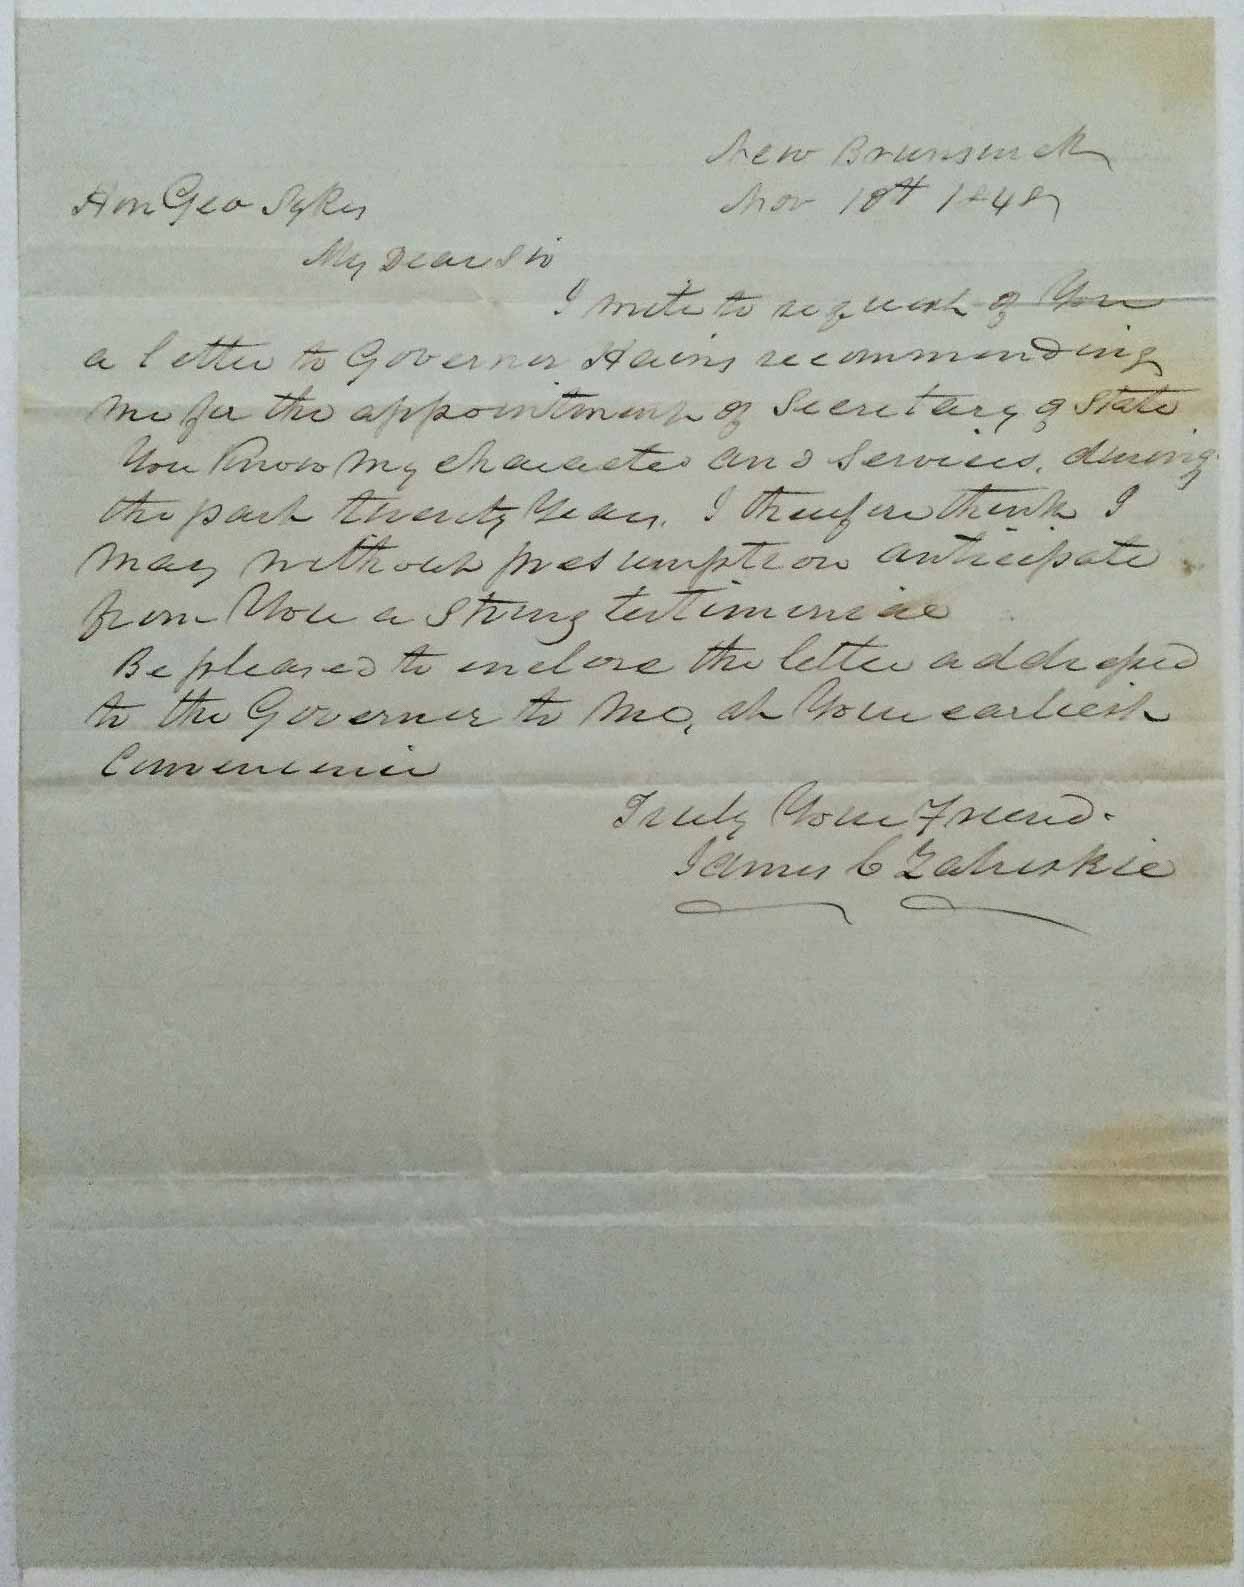 New Brunswick
Nov 18th 1848
Hon Geo Sykes
My Dear Sir
I write to request of You
a letter to Governor Hains recommending
me for the appointment of Secretary of State
You Know my character and services, during
the past twenty Years. I therefore think I
may without presumption anticipate
from You a strong testimonial
Be pleased to enclose the letter addressed
to the Governor to me, at Your earliest
Convenience
Truly Your Friend.
James C Zabriskie